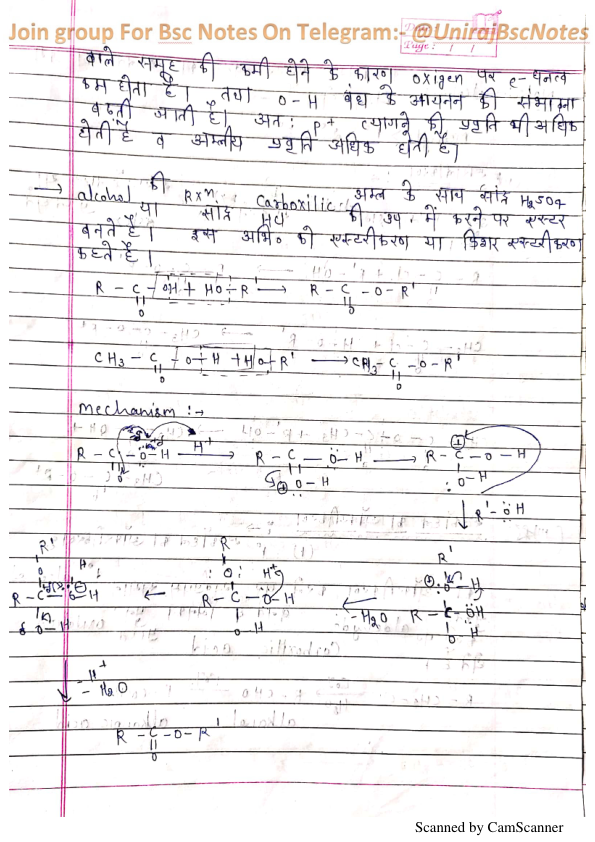 Join group For Bsc Notes On Telegram:- @UnirajBscNotes
Page: / /
वाले समूह की कमी होने के कारण oxigen पर e- घनत्व
कम होता है। तथा O-H बंध के आयनन की संभावना
बढ़ती जाती है। अतः p+ त्यागने की प्रवृति भी अधिक
होती है व अम्लीय प्रवृति अधिक होती है।
→ alcohol की Rxn Carboxilic अम्ल के साथ सांद्र H2SO4
या सांद्र HCl की उप. में करने पर एस्टर
बनते हैं। इस अभि० को एस्टरीकरण या फिशर एस्टरीकरण
कहते हैं।
R - C - OH + HO - R' → R - C - O - R'
O O
CH3 - C - O - H + H O - R' → CH3 - C - O - R'
O O
mechanism :→
R - C - O - H H+ → R - C - O - H → R - C - O - H
O O - H : O - H
R' - O H
R' R R'
O H+ : O : H+ O - H
R - C - O - H ← R - C - O - H ← - H2O R - C - OH
O - H O - H O H
- H+
- H2O
R - C - O - R'
O
Scanned by CamScanner